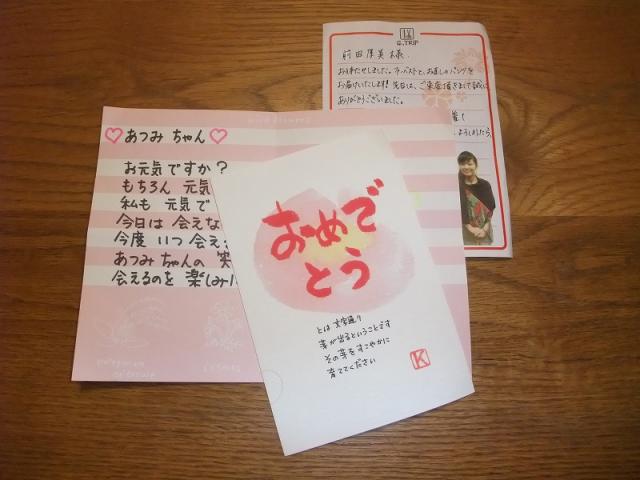 G.TRIP
前田厚美様
お待たせしました。ラバストと、お直しのパンツを
お届けいたします! 先日は、ご来店頂きまして誠に
ありがとうございました。
よろしかったら
♡あつみ ちゃん♡
お元気ですか?
もちろん 元気
私も 元気で
今日は 会えな
今度 いつ 会え
あつみちゃんの 笑
会えるのを 楽しみに
おめで
とう
とは文字通り
芽が出るということです
その芽をすこやかに
育ててください
K